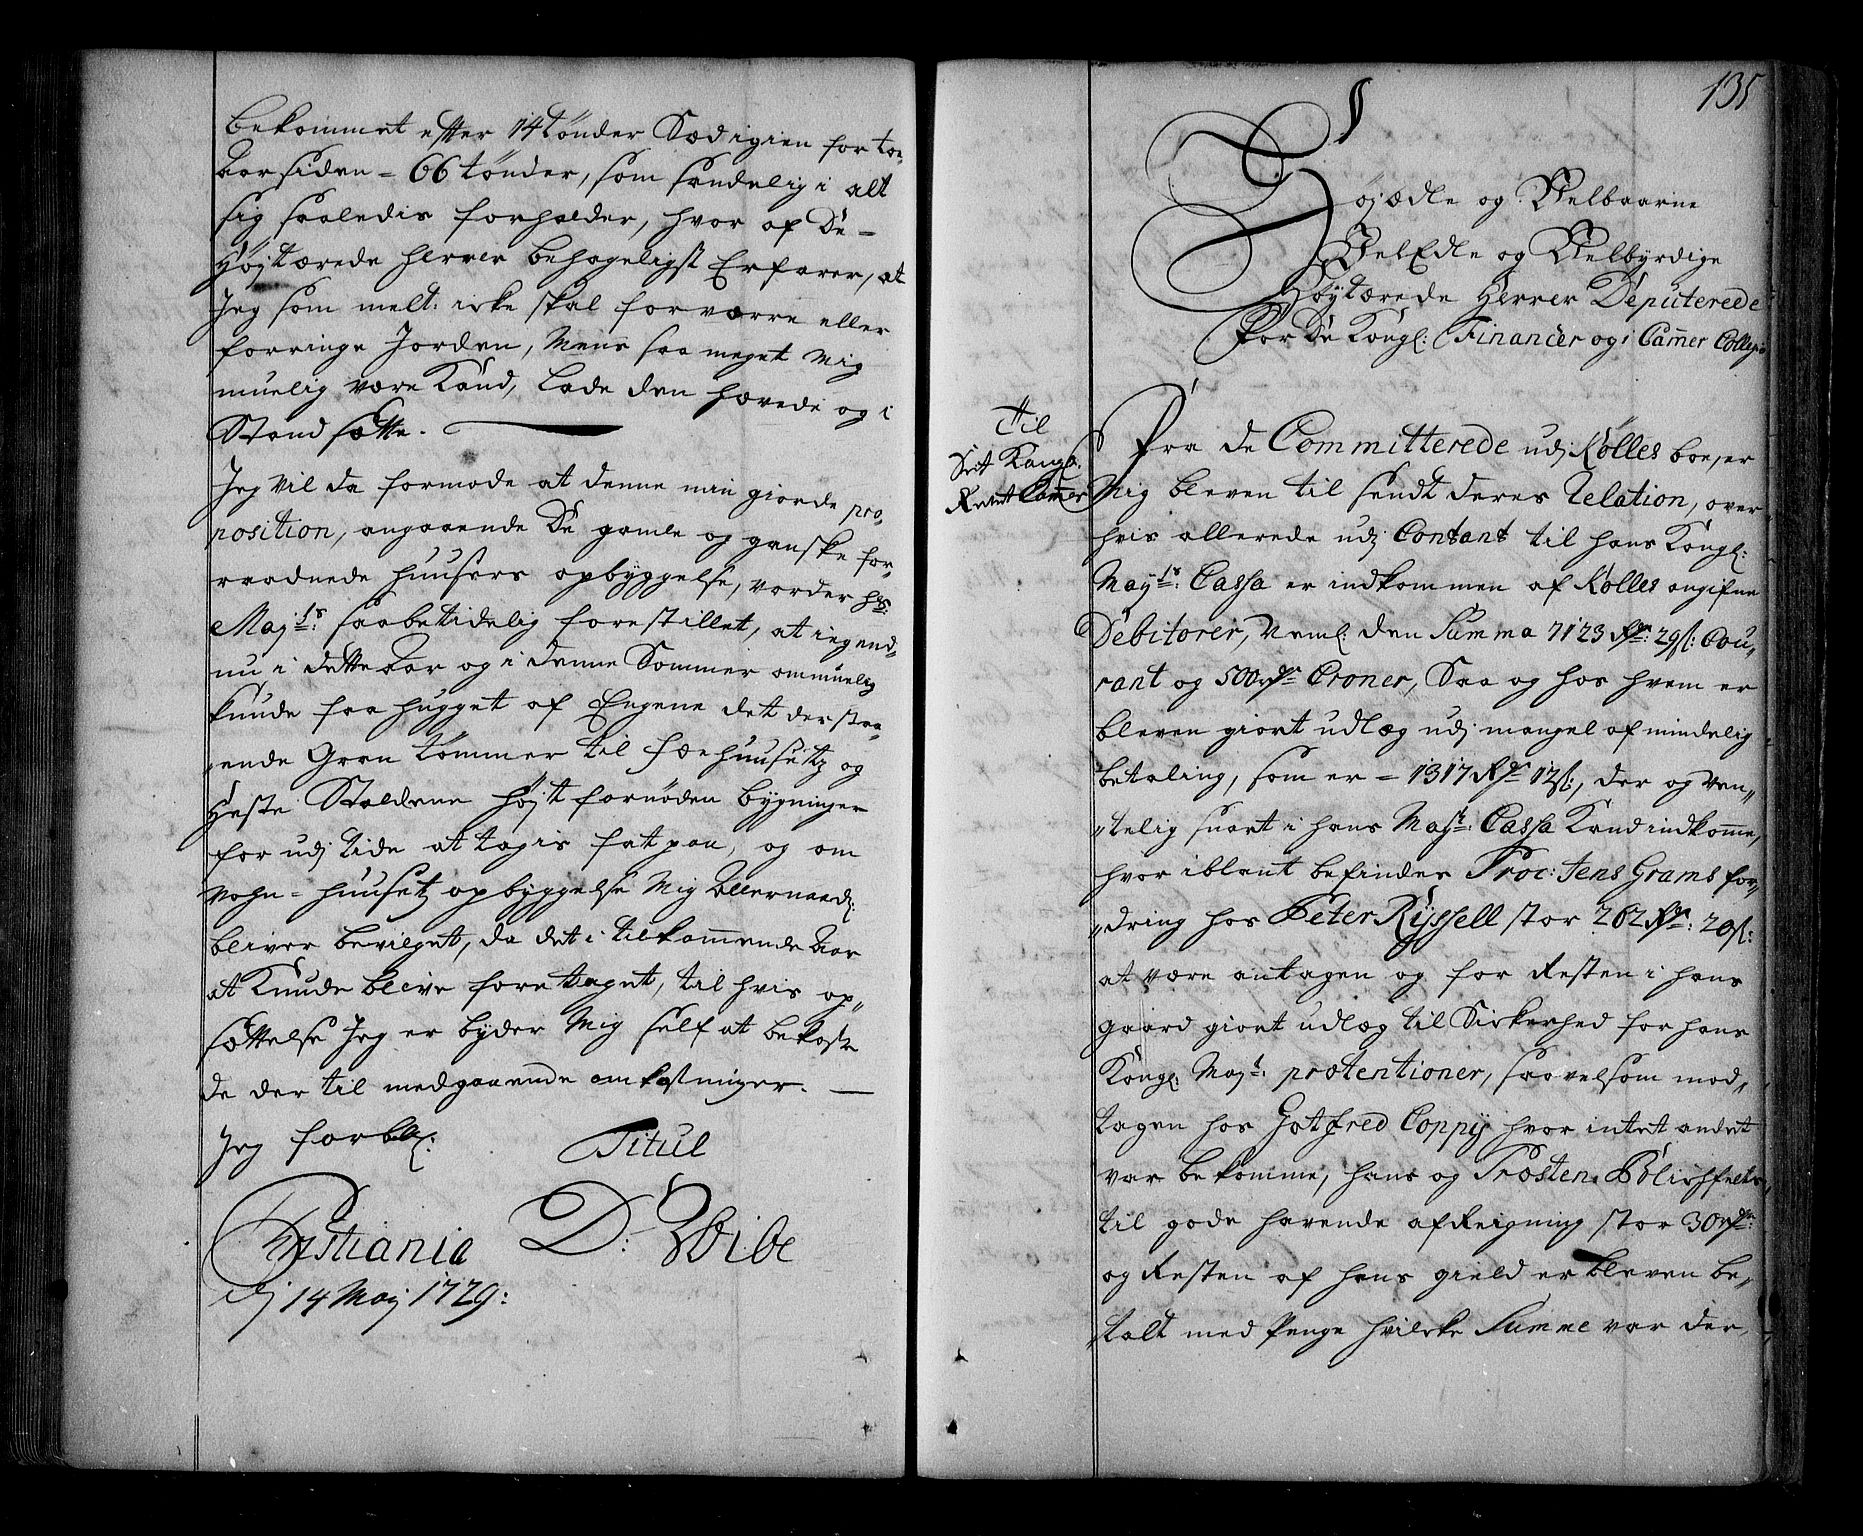 bekommet efter 14 tønder Sæd igien for toe
Aar siden = 66 tønder, som sandelig i alt
sig saaledis forholder, hvor af De =
Høytærede Herrer behageligst Erfarer, at
Jeg som melt: icke skal forværre eller
forringe Jorden, Mens saa meget Mig
muelig være Kand, lade den hævede og i
Stand sætte.
Jeg vil da formode at denne min giorde pro-
position, angaaende De gamle og ganske for-
raadnede Huusers opbyggelse, vorder Hs:
Mayts: saa betidelig forestillet, at iegend-
nu i dette Aar og i denne Sommer om muelig
kunde faa hugget af Engene det der staa-
ende Gran Tømmer til Fæehuusetz og
Heste Staldene høyt fornøden bygninger
for udj tide at tages fat paa, og om
Vohn = huusetz opbyggelse Mig Allernaad:
bliver bevilget, da det i tilkommende Aar
at Kunde blive foretaget, til hvis op-
sættelse Jeg er byder Mig self at bekoste
de der til medgaaende omkostninger.
Jeg forbl: Titul
Christiania D: Wibe
dj 14 Maij 1729:
135
Højædle og Velbaarne
VelEdle og Velbyrdige
Høytærede Herrer Deputerede
For De Kongl: Financer og i Camer Collegio
Til
Det Kongl.
Rente Camer
Fra de Committerede udj Kølles boe, er
Mig bleven til sendt deres Relation, over
hvis allerede udj Contant til hans Kongl:
Mayts: Cassa er indkommen af Kølles angifne
Debitorer, Neml: den Summa 7123 Rdr: 29 s: Cou-
rant og 500 rdr Croner, Saa og hos hvem er
bleven giort udlæg udj mangel af mindelig
betaling, som er = 1317 Rdr 12 s:, der og ven-
telig snart i hans Mayts: Cassa Kand indkomme,
hvor iblant befindes Proc: Jens Grams for-
dring hos Peter Ryssell stor 262 Rdr: 20 s:
at være antagen og for Resten i hans
gaard giort udlæg til Sickerhed for hans
Kongl: Mayts: prætentioner, saavelsom mod-
tagen hos Gotfred Coppij hvor intet andet
var bekomme, hans og Prosten Blichfelts
til gode havende afReigning stor 30 rdr:
og Resten af hans gield er bleven be-
talt med Penge hvilcke Summe var der